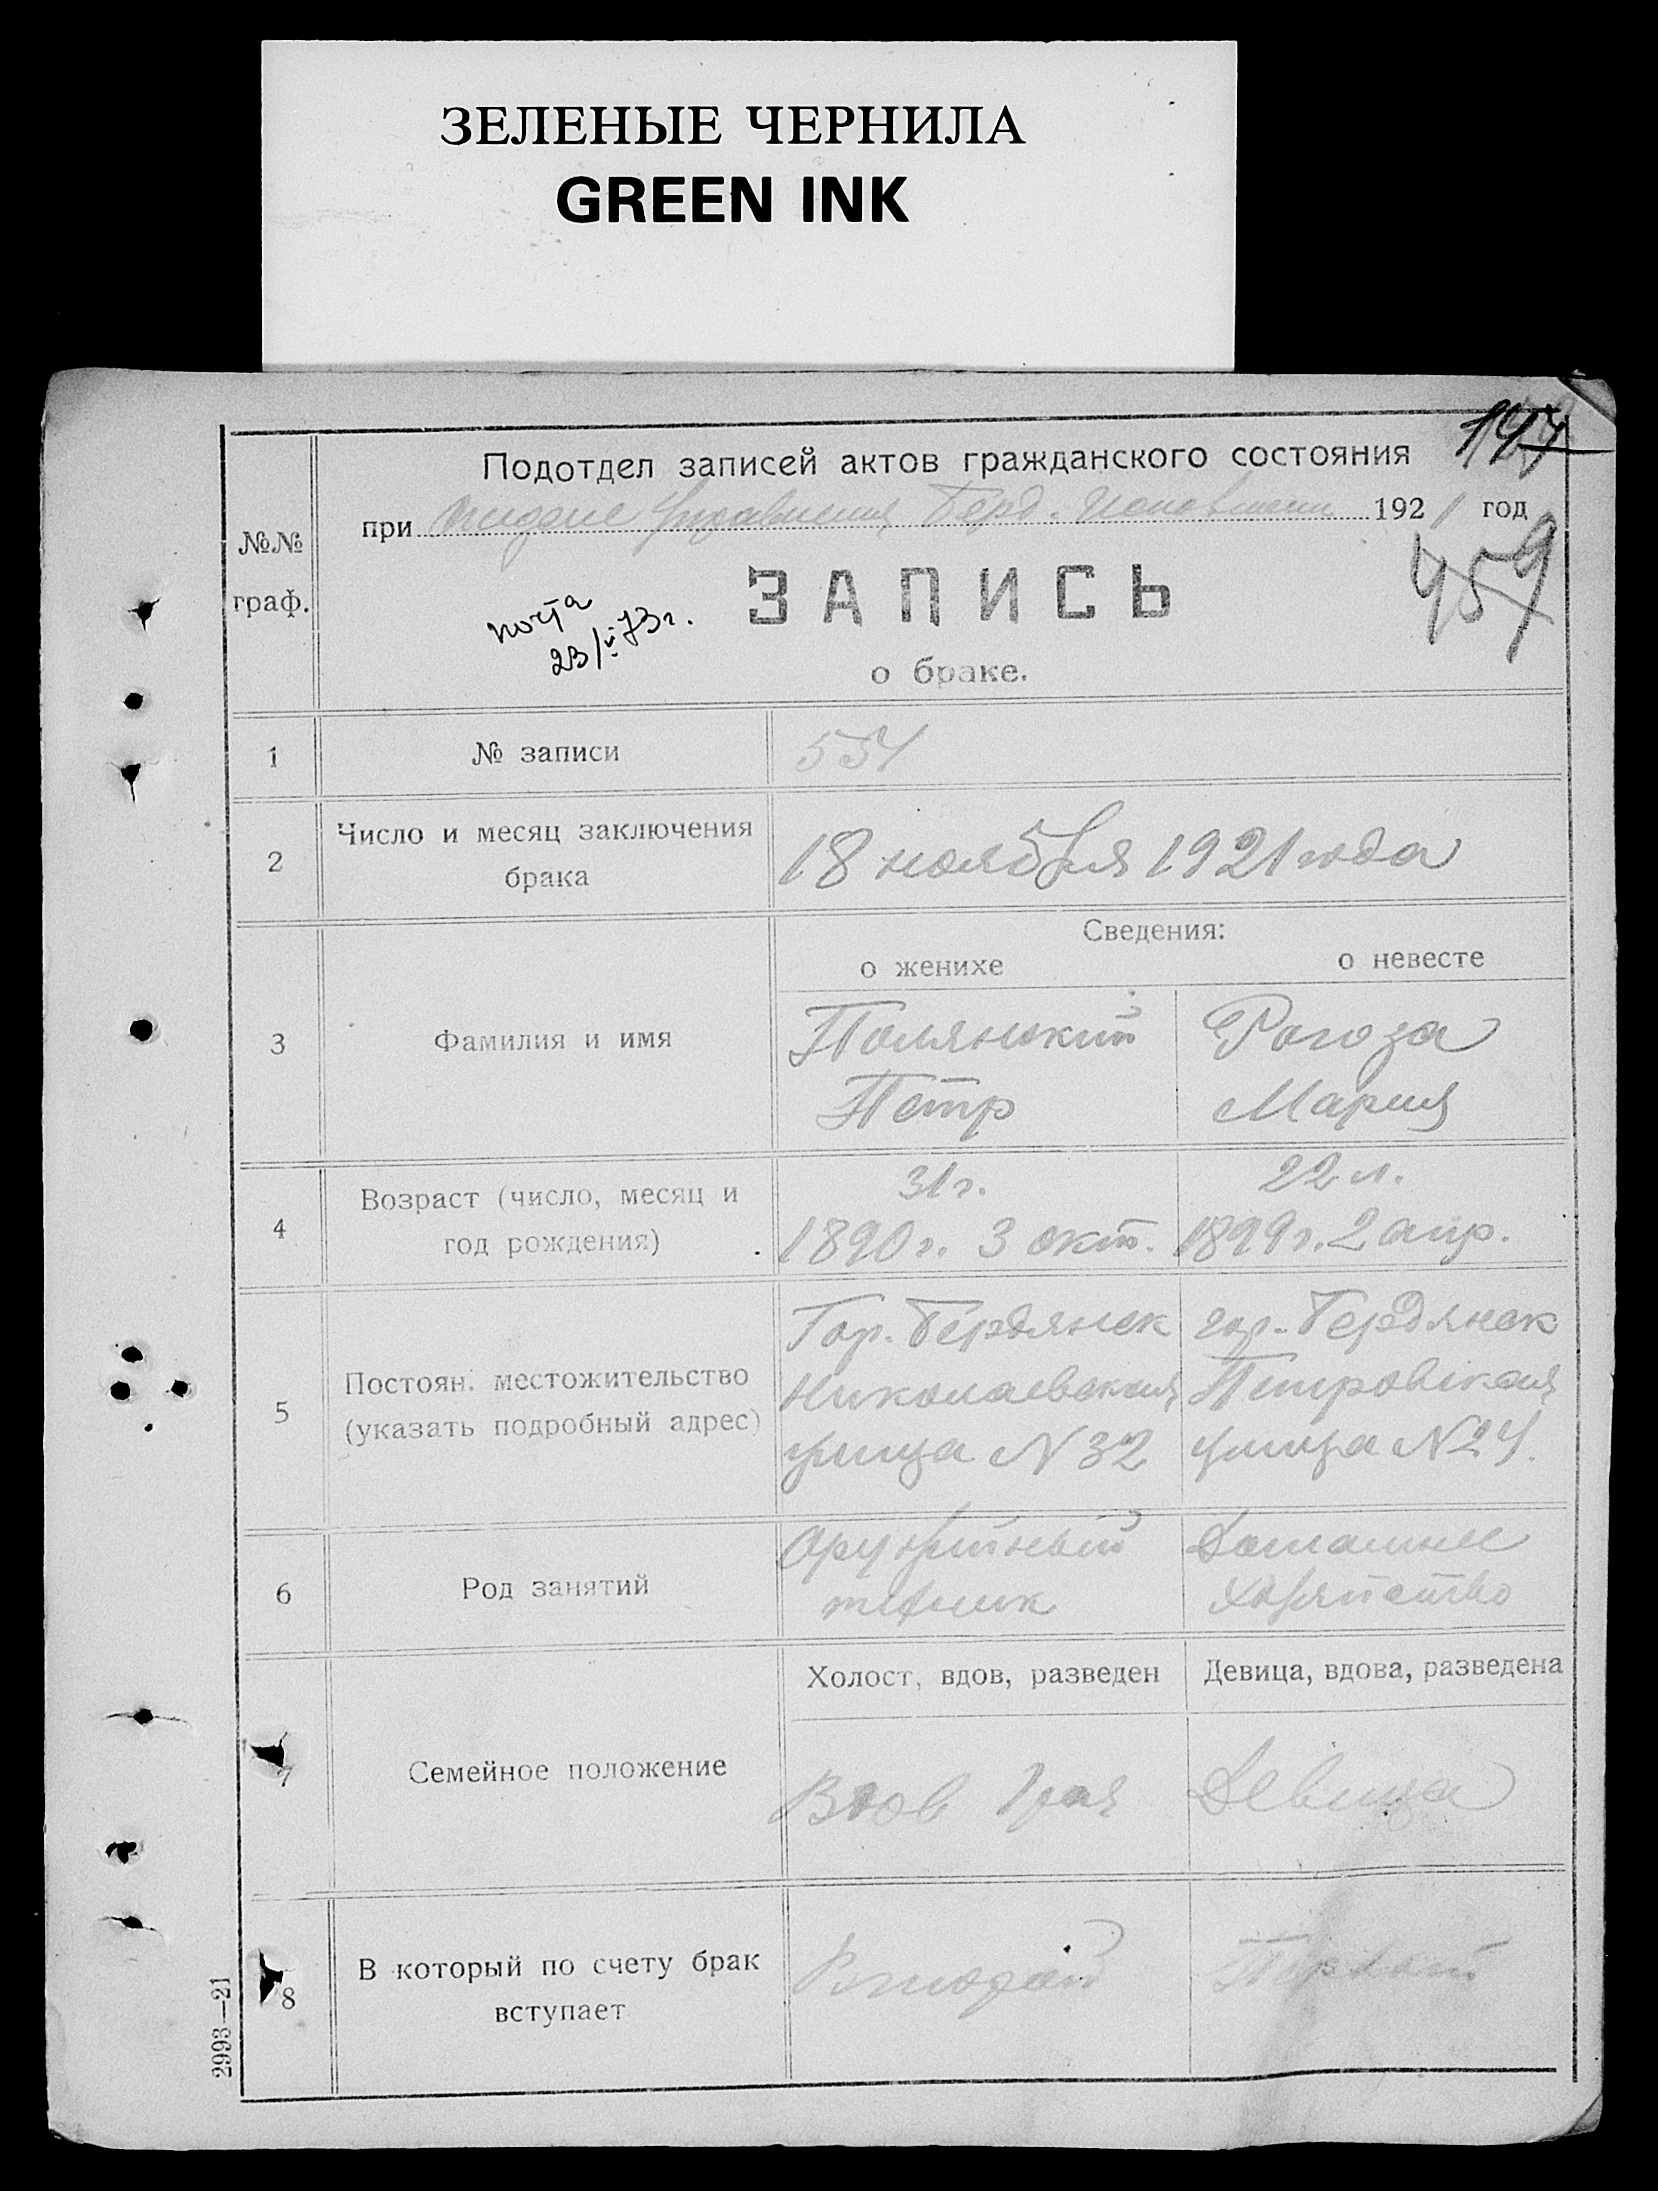 ЗЕЛЕНЫЕ ЧЕРНИЛА
GREEN INK
147
Подотдел записей актов гражданского состояния
при Отделе Управления Берд. 1921 год
№№ граф.
459
ЗАПИСЬ
почта
23/VI 73 г.
о браке.
1 № записи 554
2 Число и месяц заключения брака 18 ноября 1921 года
Сведения:
о женихе о невесте
3 Фамилия и имя
Полянский Рогоза
Петр Мария
4 Возраст (число, месяц и год рождения)
31 г. 22 л.
1890 г. 3 окт. 1899 г. 2 апр.
5 Постоян. местожительство (указать подробный адрес)
Гор. Бердянск гор. Бердянск
Николаевская
улица N 32 улица N 24.
6 Род занятий
Оружейный Домашнее
техник хозяйство
Холост, вдов, разведен Девица, вдова, разведена
7 Семейное положение
Вдов Девица
8 В который по счету брак вступает
Второй Первый
2993—21